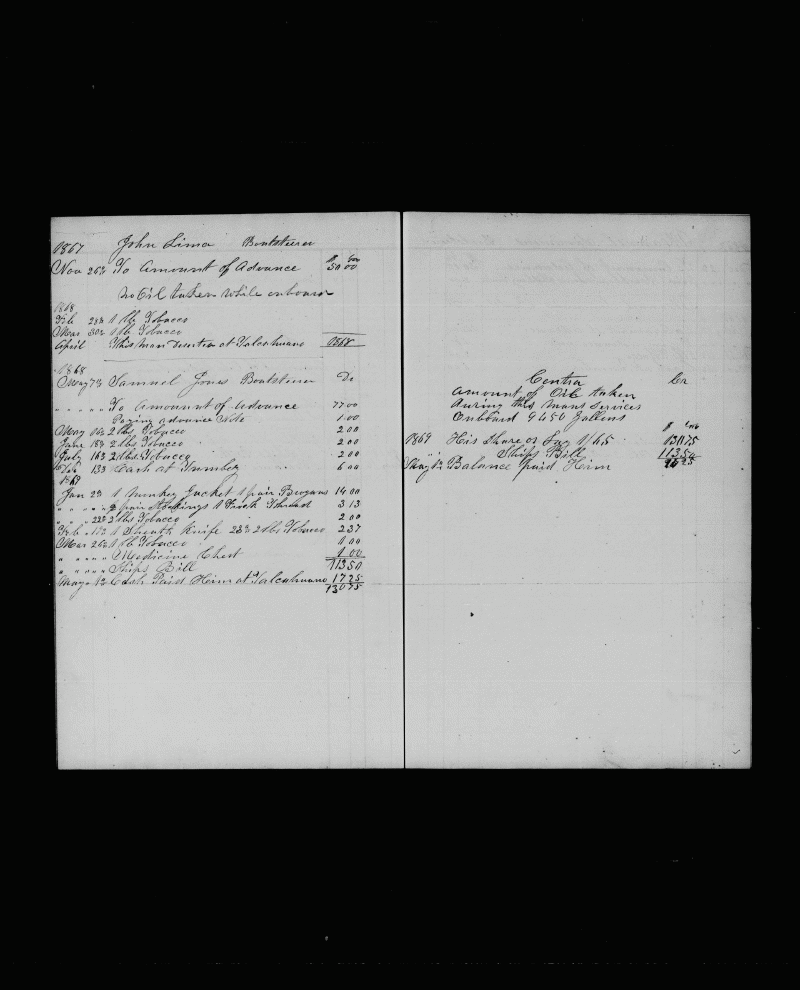 1867 John Lima Boatsteerer
$ cts
Nov 26th To Amount of Advance 50 00
No Oil taken while onboard
1868
Feb 28th 1 lb Tobacco
Mar 30th 1 lb Tobacco
April This man deserted at Talcahuano 1868
1868
May 7th Samuel Jones Boatsteerer Dr
" " " " To Amount of Advance 77 00
Paying advance Note 1 00
May 16th 2 lbs Tobacco 2 00
June 18th 2 lbs Tobacco 2 00
July 16th 2 lbs Tobacco 2 00
13th Cash at Tumbez 6 00
1869
Jan 23 1 Monkey Jacket 1 pair Brogans 14 00
" " " " 2 pair Stockings 1 Frock Thread 3 13
" " 22nd 2 lbs Tobacco 2 00
Feb 1 Sheath Knife 2 lbs Tobacco 2 37
Mar 26th 1 lb Tobacco 1 00
" " " " Medicine Chest 1 00
" " " " Ships Bill 113 50
May 12 Cash Paid Him at Talcahuano 17 25
130 75
Contra Cr
Amount of Oil taken
during this mans services
Onboard 9450 Gallons
$ cts
1869 His share or Lay 1/65 130 75
" Ships Bill 113 50
May 12 Balance paid Him 25